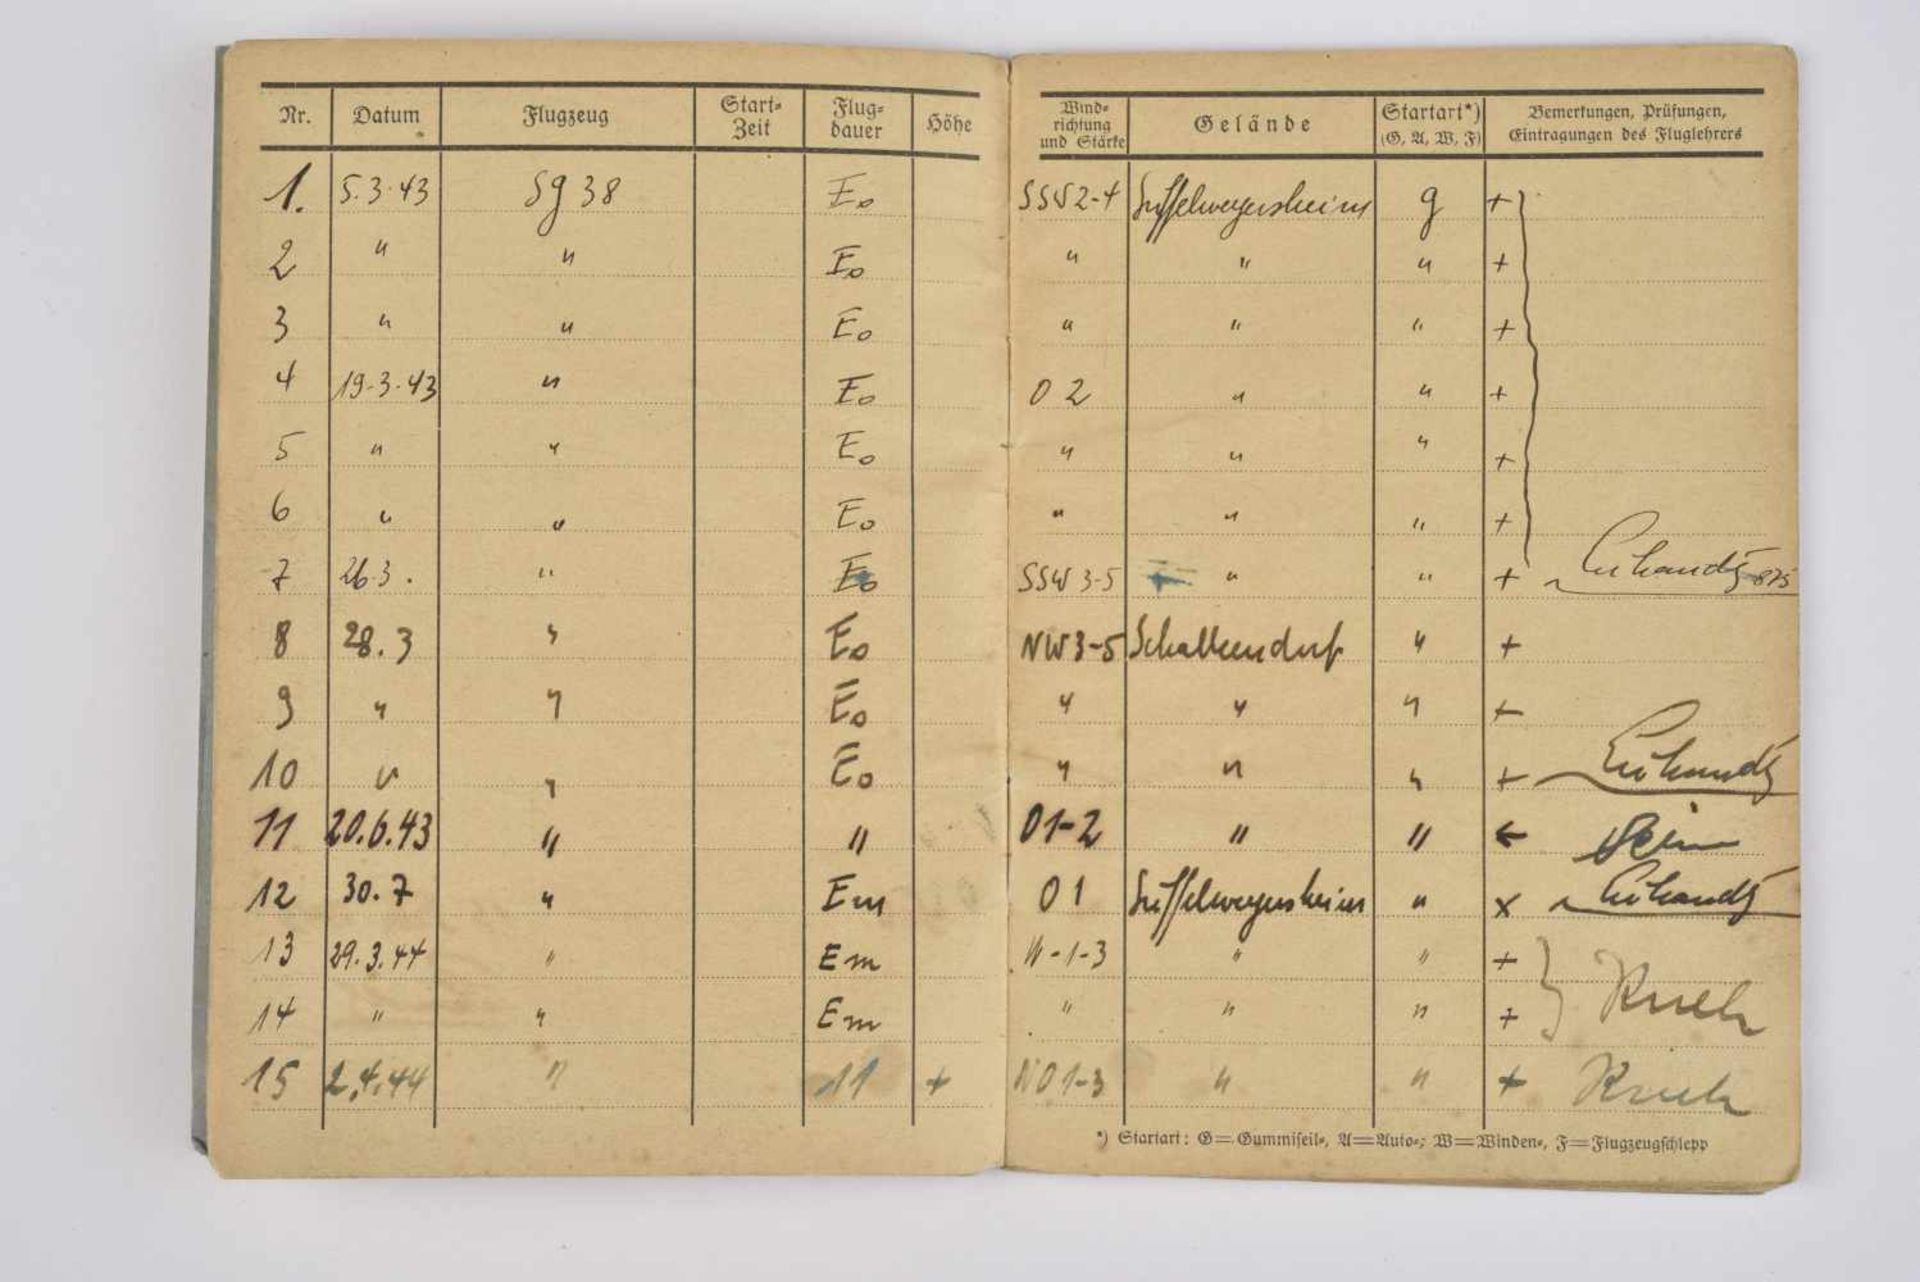 Nr. Datum Flugzeug Start-Zeit Flug-dauer Höhe Wind-richtung und Stärke Gelände Startart*) (G, A, W, F) Bemerkungen, Prüfungen, Eintragungen des Fluglehrers
1. 5.3.43 Sg 38 Eo SSW 2-4 Suffelweyersheim g +
2 " " Eo " " " +
3 " " Eo " " " +
4 19.3.43 " Eo O 2 " " +
5 " " Eo " " " +
6 " " Eo " " " +
7 26.3. " Eo SSW 3-5 " " +
8 28.3 " Eo NW 3-5 Schalkendorf " +
9 " " Eo " " " +
10 " " Eo " " " +
11 20.6.43 " " O1-2 " " +
12 30.7 " Em O 1 Suffelweyersheim " x
13 29.3.44 " Em N-1-3 " " +
14 " " Em " " " +
15 2.4.44 " 11 + NO 1-3 " " +
*) Startart: G=Gummiseil-, A=Auto-; W=Winden-, F=Flugzeugschlepp